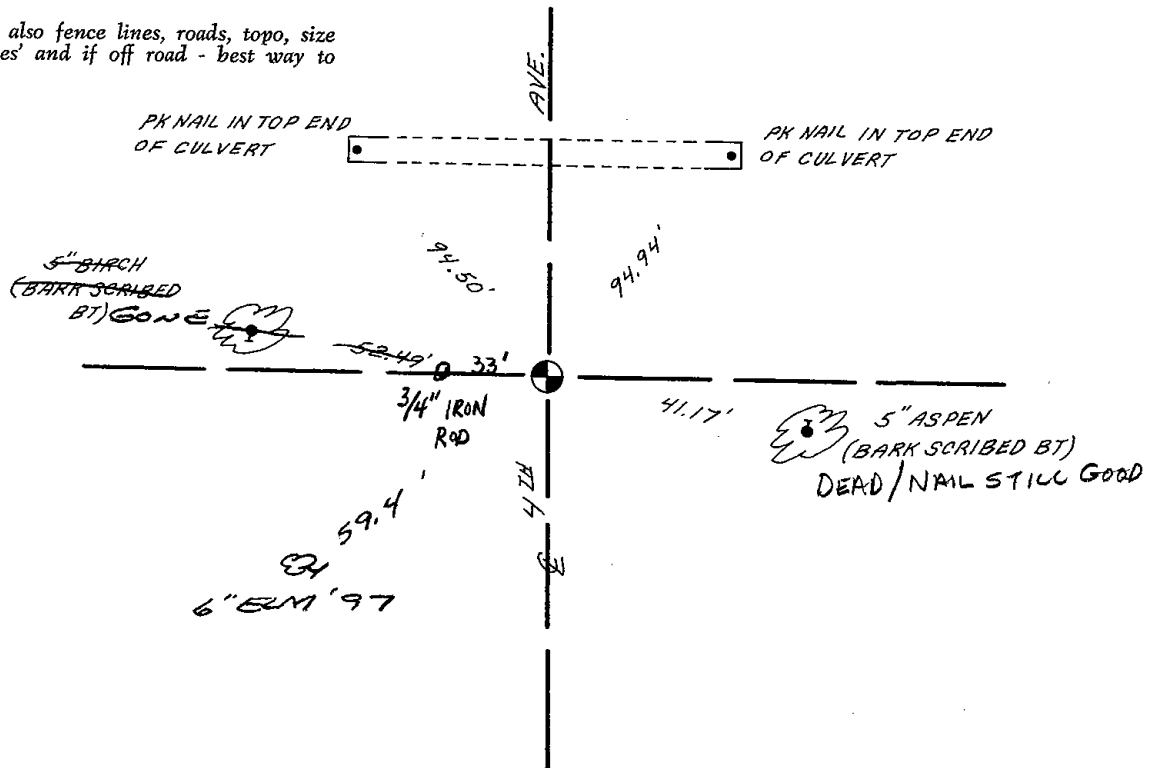 also fence lines, roads, topo, size
es' and if off road - best way to
AVE.
PK NAIL IN TOP END
OF CULVERT
PK NAIL IN TOP END
OF CULVERT
94.50'
94.94'
5" BIRCH
(BARK SCRIBED
BT) GONE
52.49'
33'
3/4" IRON
ROD
41.17'
5" ASPEN
(BARK SCRIBED BT)
DEAD/NAIL STILL GOOD
4 TH
℄
59.4'
6" ELM '97